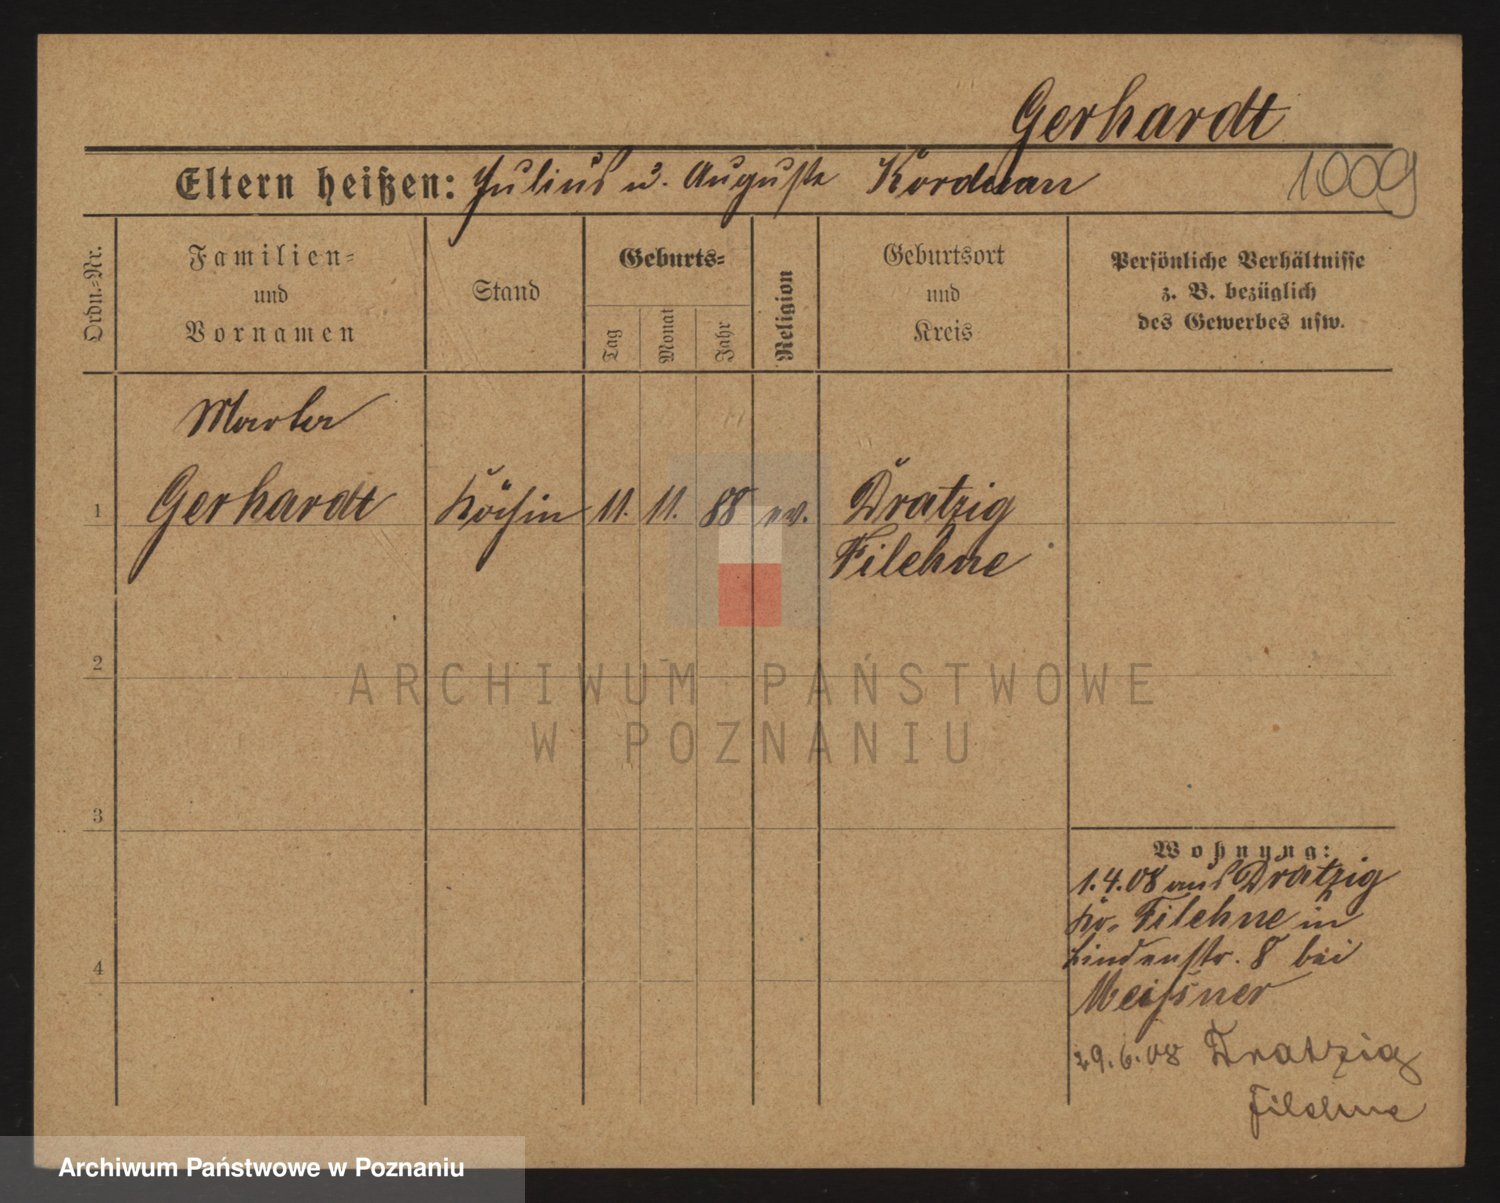 Gerhardt
Eltern heißen: Julius u. Auguste Korduan
1009
Ordn.-Nr.
Familien-
und
Vornamen
Stand
Geburts-
Tag
Monat
Jahr
Religion
Geburtsort
und
Kreis
Persönliche Verhältnisse
z. B. bezüglich
des Gewerbes usw.
Martha
1 Gerhardt Köchin 11. 11. 88 ev. Dratzig
Filehne
2
ARCHIWUM PAŃSTWOWE
W POZNANIU
3
Wohnung:
1.4.08 aus Dratzig
Kr. Filehne in
Lindenstr. 8 bei
4
Meißner
29.6.08 Dratzig
Filehne
Archiwum Państwowe w Poznaniu